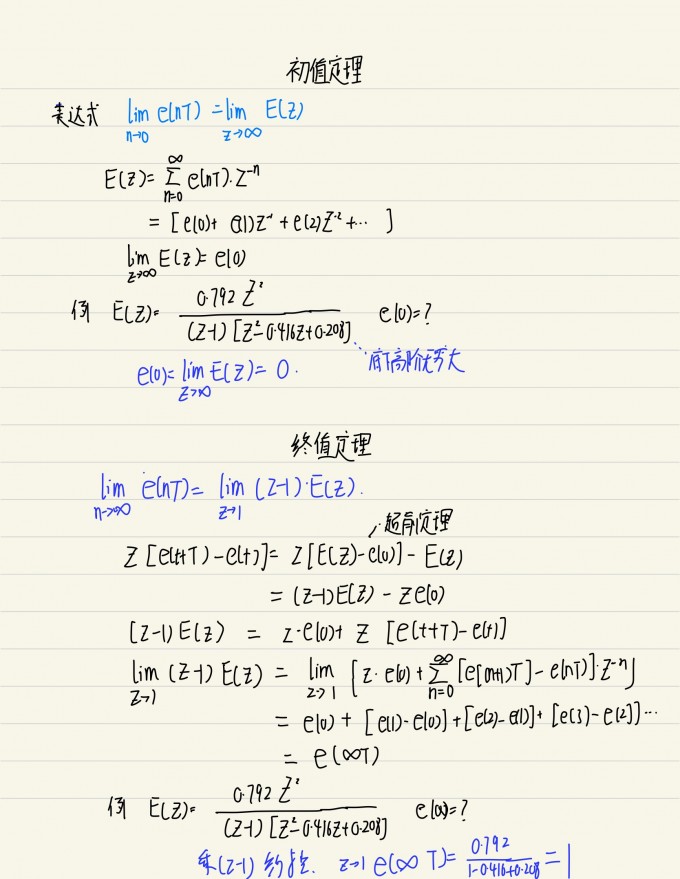 初值定理
表达式 lim e(nT) = lim E(z)
n→0 z→∞
E(z)= ∞Σn=0 e(nT)·z⁻ⁿ
= [e(0)+ e(1)z⁻¹ + e(2)z⁻² +⋯ ]
lim E(z)= e(0)
z→∞
例 E(z)= 0.792 z² / (z-1)[z²-0.416z+0.208] e(0)=?
底下高阶无穷大
e(0)= lim E(z)= 0.
z→∞
终值定理
lim e(nT)= lim (z-1)·E(z).
n→∞ z→1
超前定理
Z [e(t+T)-e(t)]= z[E(z)-e(0)]- E(z)
= (z-1)E(z) - ze(0)
(z-1)E(z) = z·e(0)+ Z [e(t+T)-e(t)]
lim (z-1) E(z) = lim [z·e(0) + ∞Σn=0 [e[(n+1)T]- e(nT)]·z⁻ⁿ]
z→1 z→1
= e(0) + [e(1)-e(0)]+[e(2)-e(1)]+[e(3)-e(2)]⋯
= e(∞T)
例 E(z)= 0.792 z² / (z-1)[z²-0.416z+0.208] e(∞)=?
乘(z-1) 约掉. z→1 e(∞T)= 0.792 / 1-0.416+0.208 = 1